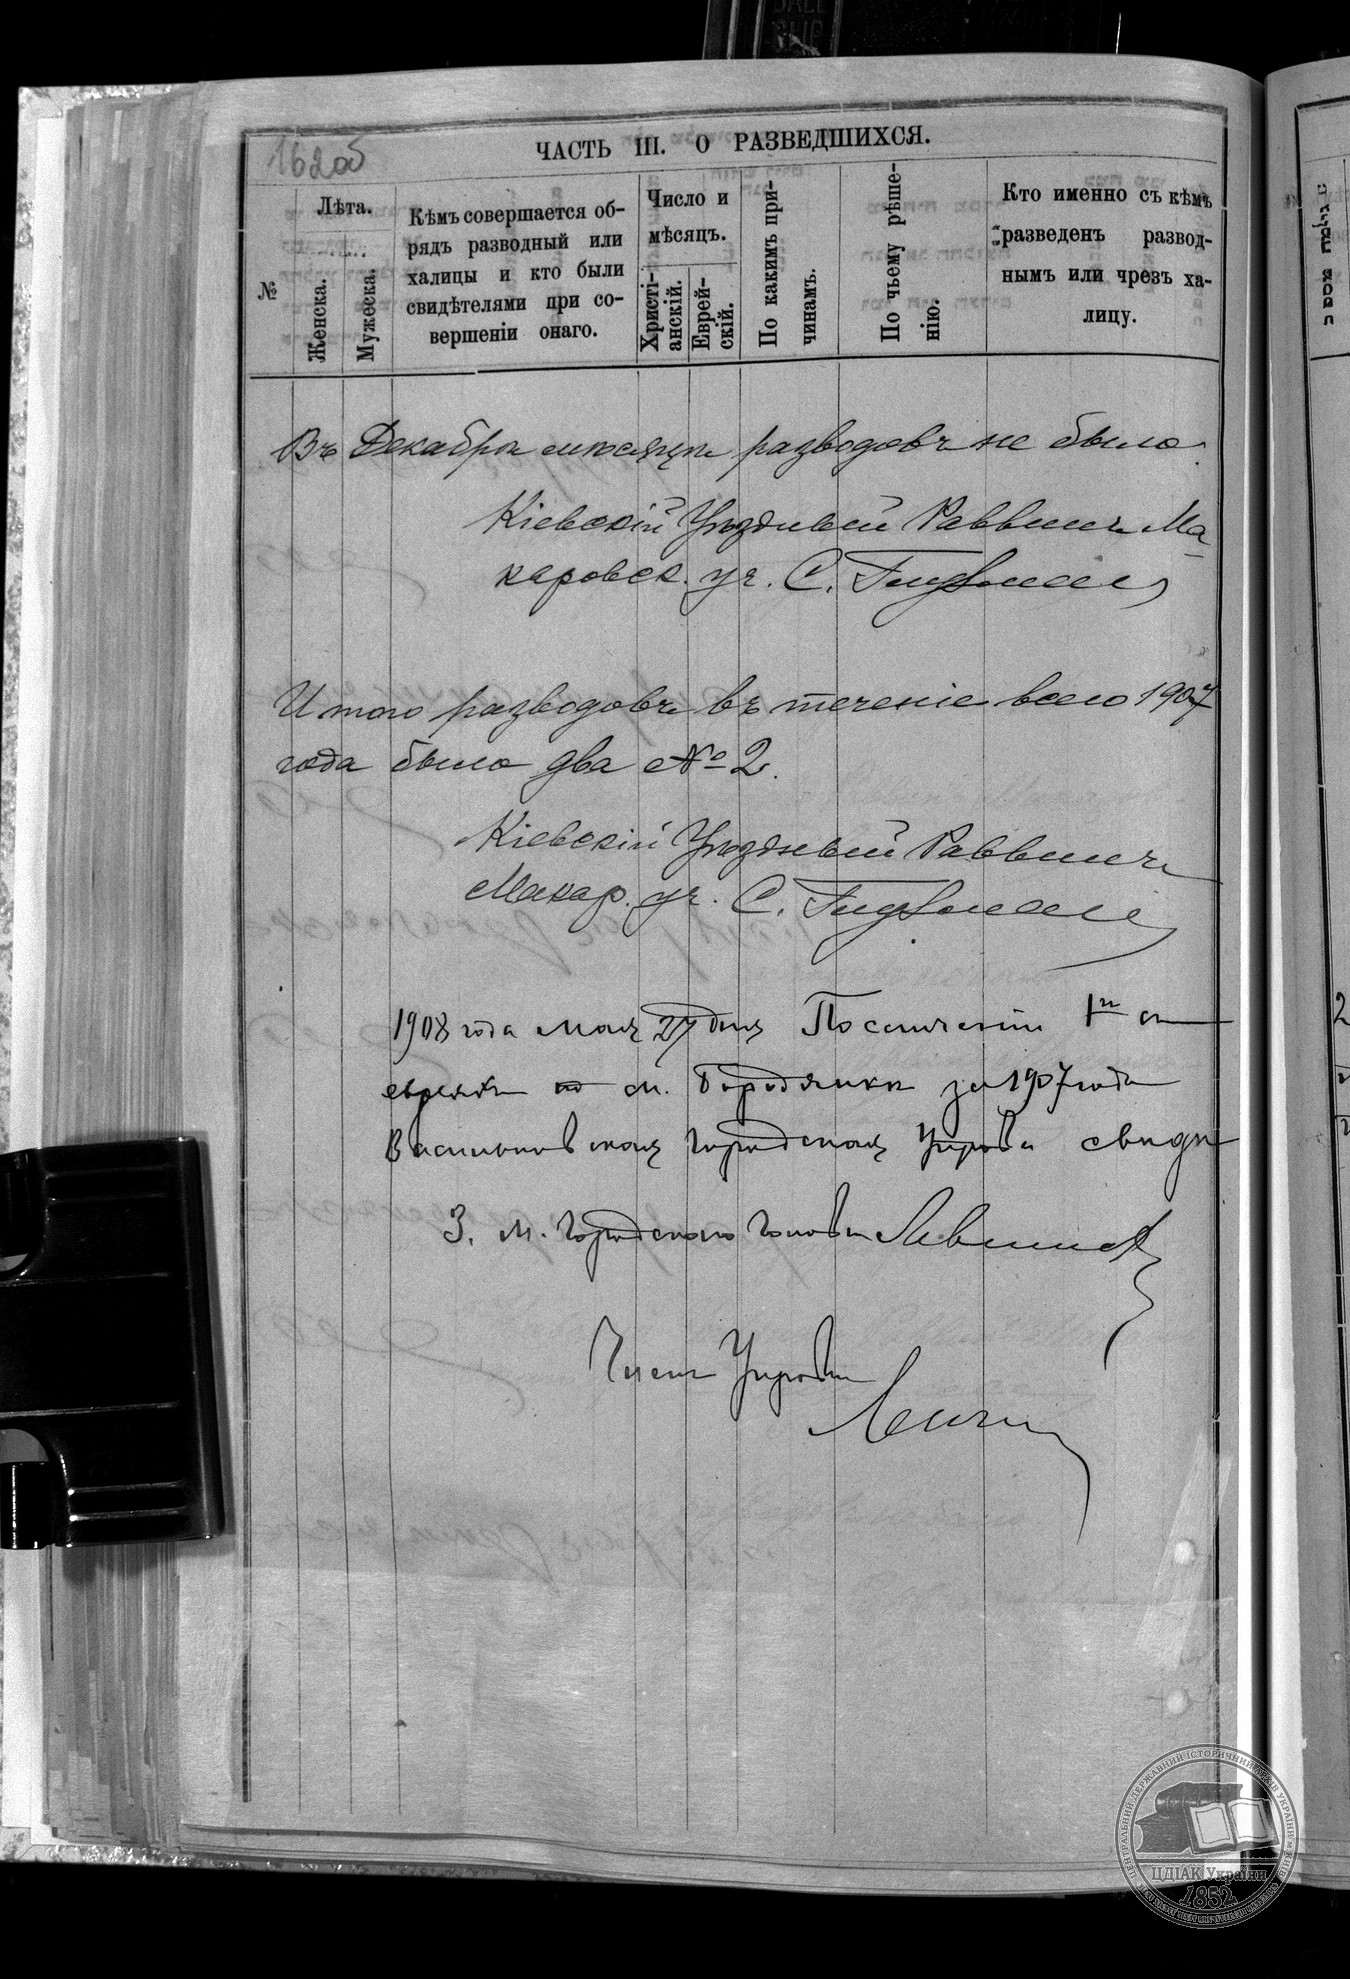 162об
ЧАСТЬ III. О РАЗВЕДШИХСЯ.
№
Лѣта.
Женска.
Мужеска.
Кѣмъ совершается об-
рядъ разводный или
халицы и кто были
свидѣтелями при со-
вершеніи онаго.
Число и
мѣсяцъ.
Христі-
анскій.
Еврей-
скій.
По какимъ при-
чинамъ.
По чьему рѣше-
нію.
Кто именно съ кѣмъ
разведенъ развод-
нымъ или чрезъ ха-
лицу.
Въ Декабрѣ мѣсяцѣ разводовъ не было
Кіевскій Уѣздный Раввинъ Ма-
каровск. уч. С.
Итого разводовъ въ теченіе всего 1907
года было два № 2.
Кіевскій Уѣздный Раввинъ
Макар. уч. С.
1908 года мая 27 дня
м. Бородянки за 1907 года
Городской Управѣ
З. м. Городского Головы
Членъ Управы
ЦЕНТРАЛЬНИЙ ДЕРЖАВНИЙ ІСТОРИЧНИЙ АРХІВ УКРАЇНИ М.КИЇВ
ЦДІАК України
1852